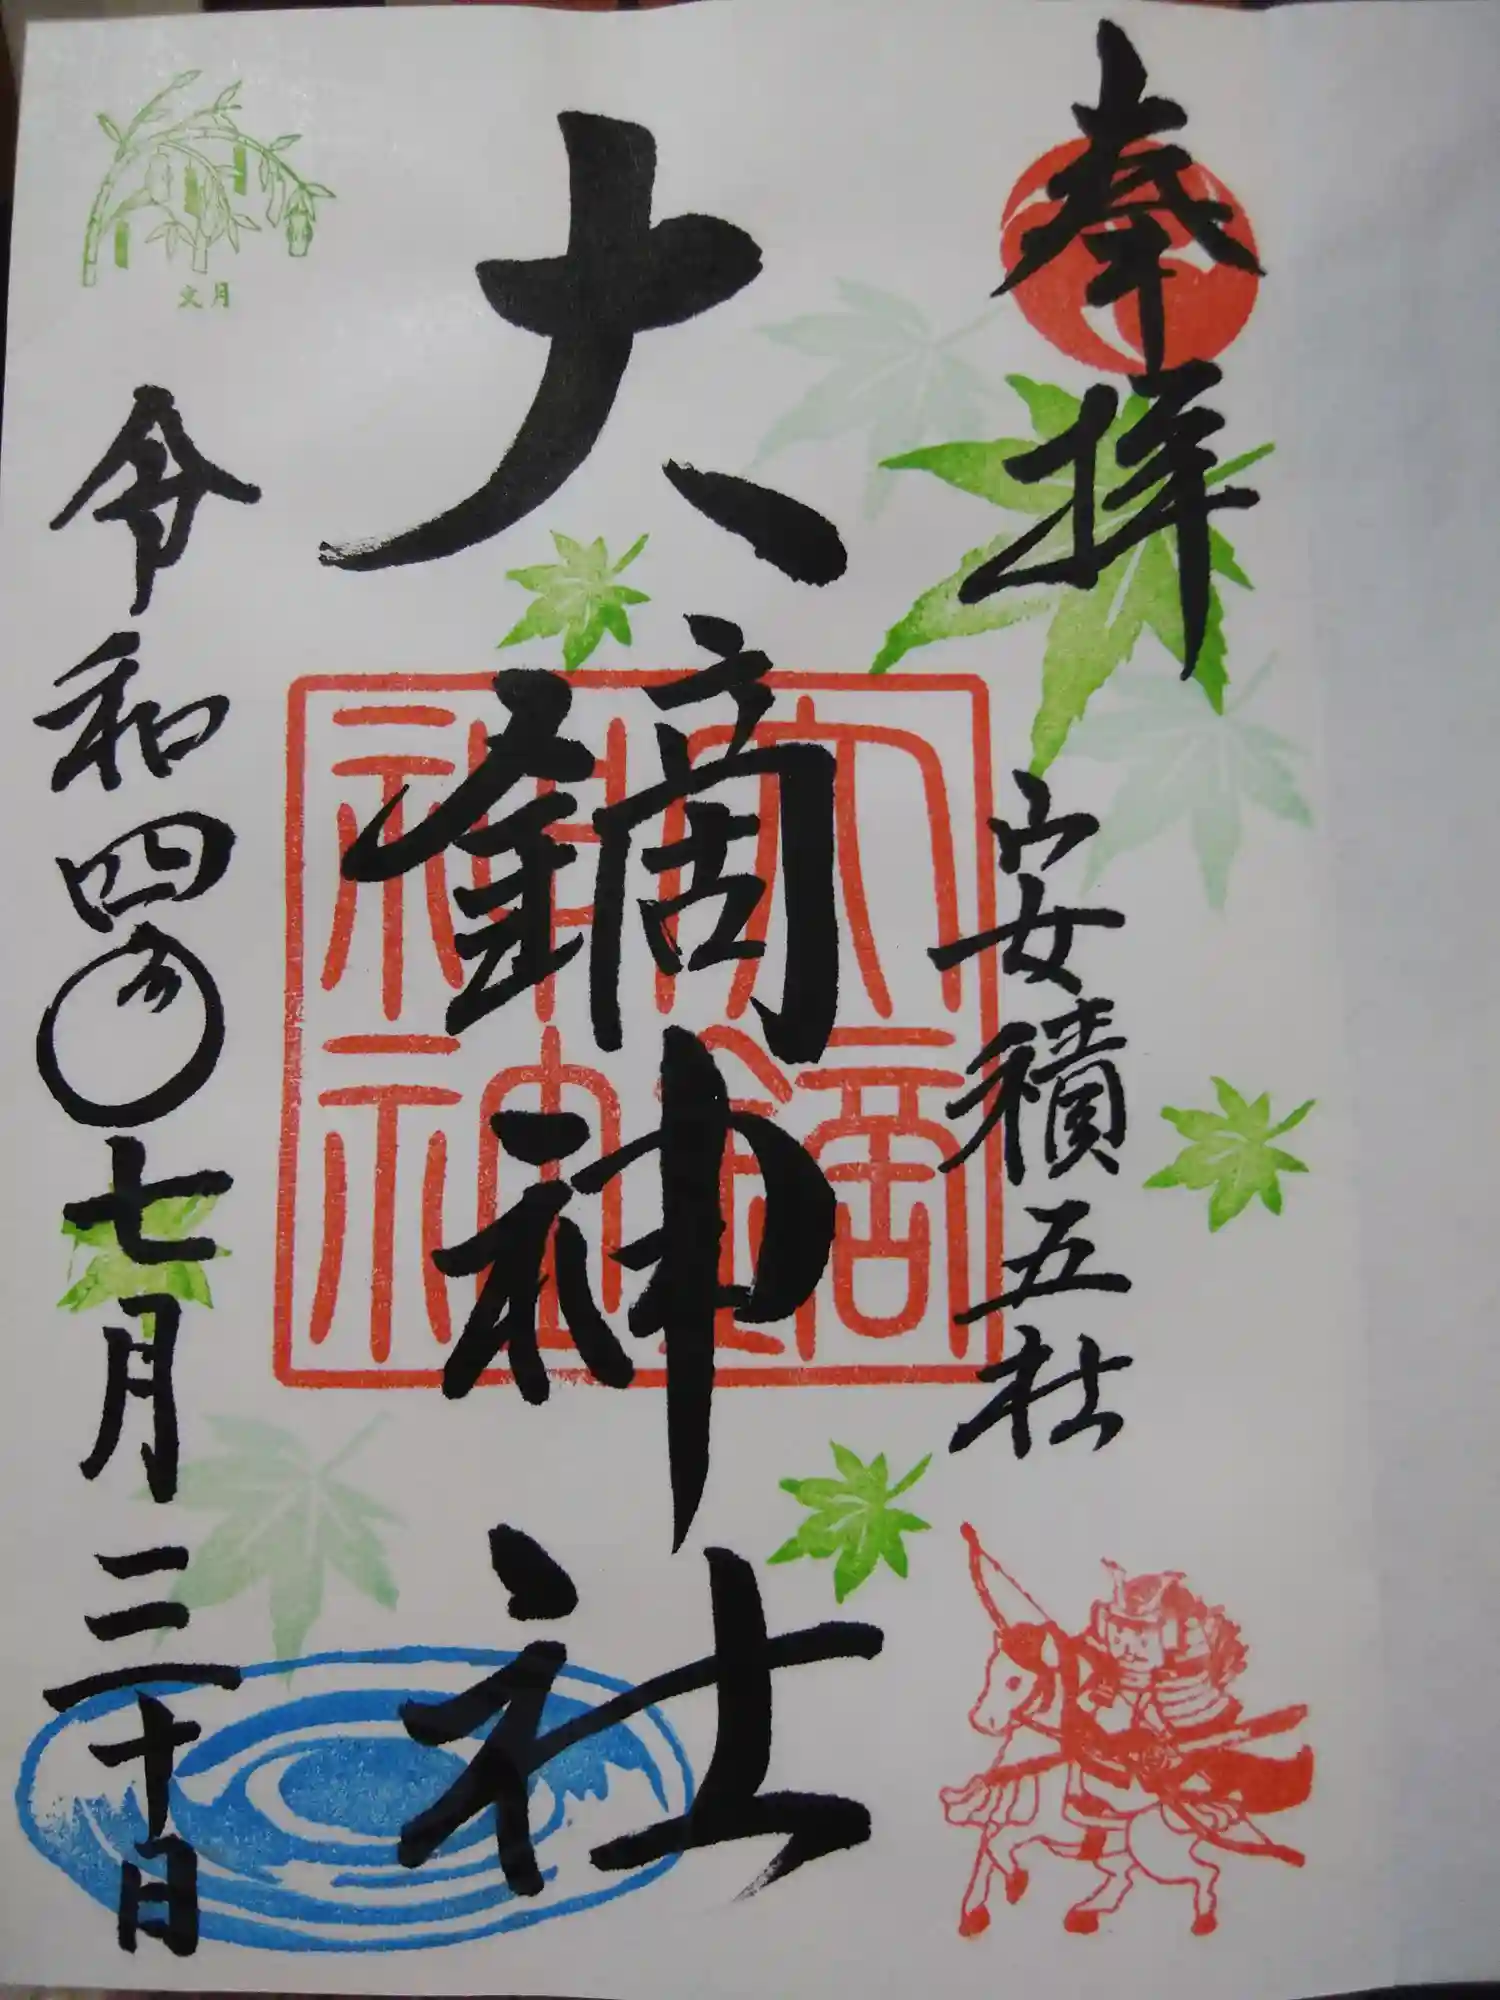 奉拝
安積五社
大鏑神社
大鏑
神社
令和四年七月三十日
文月